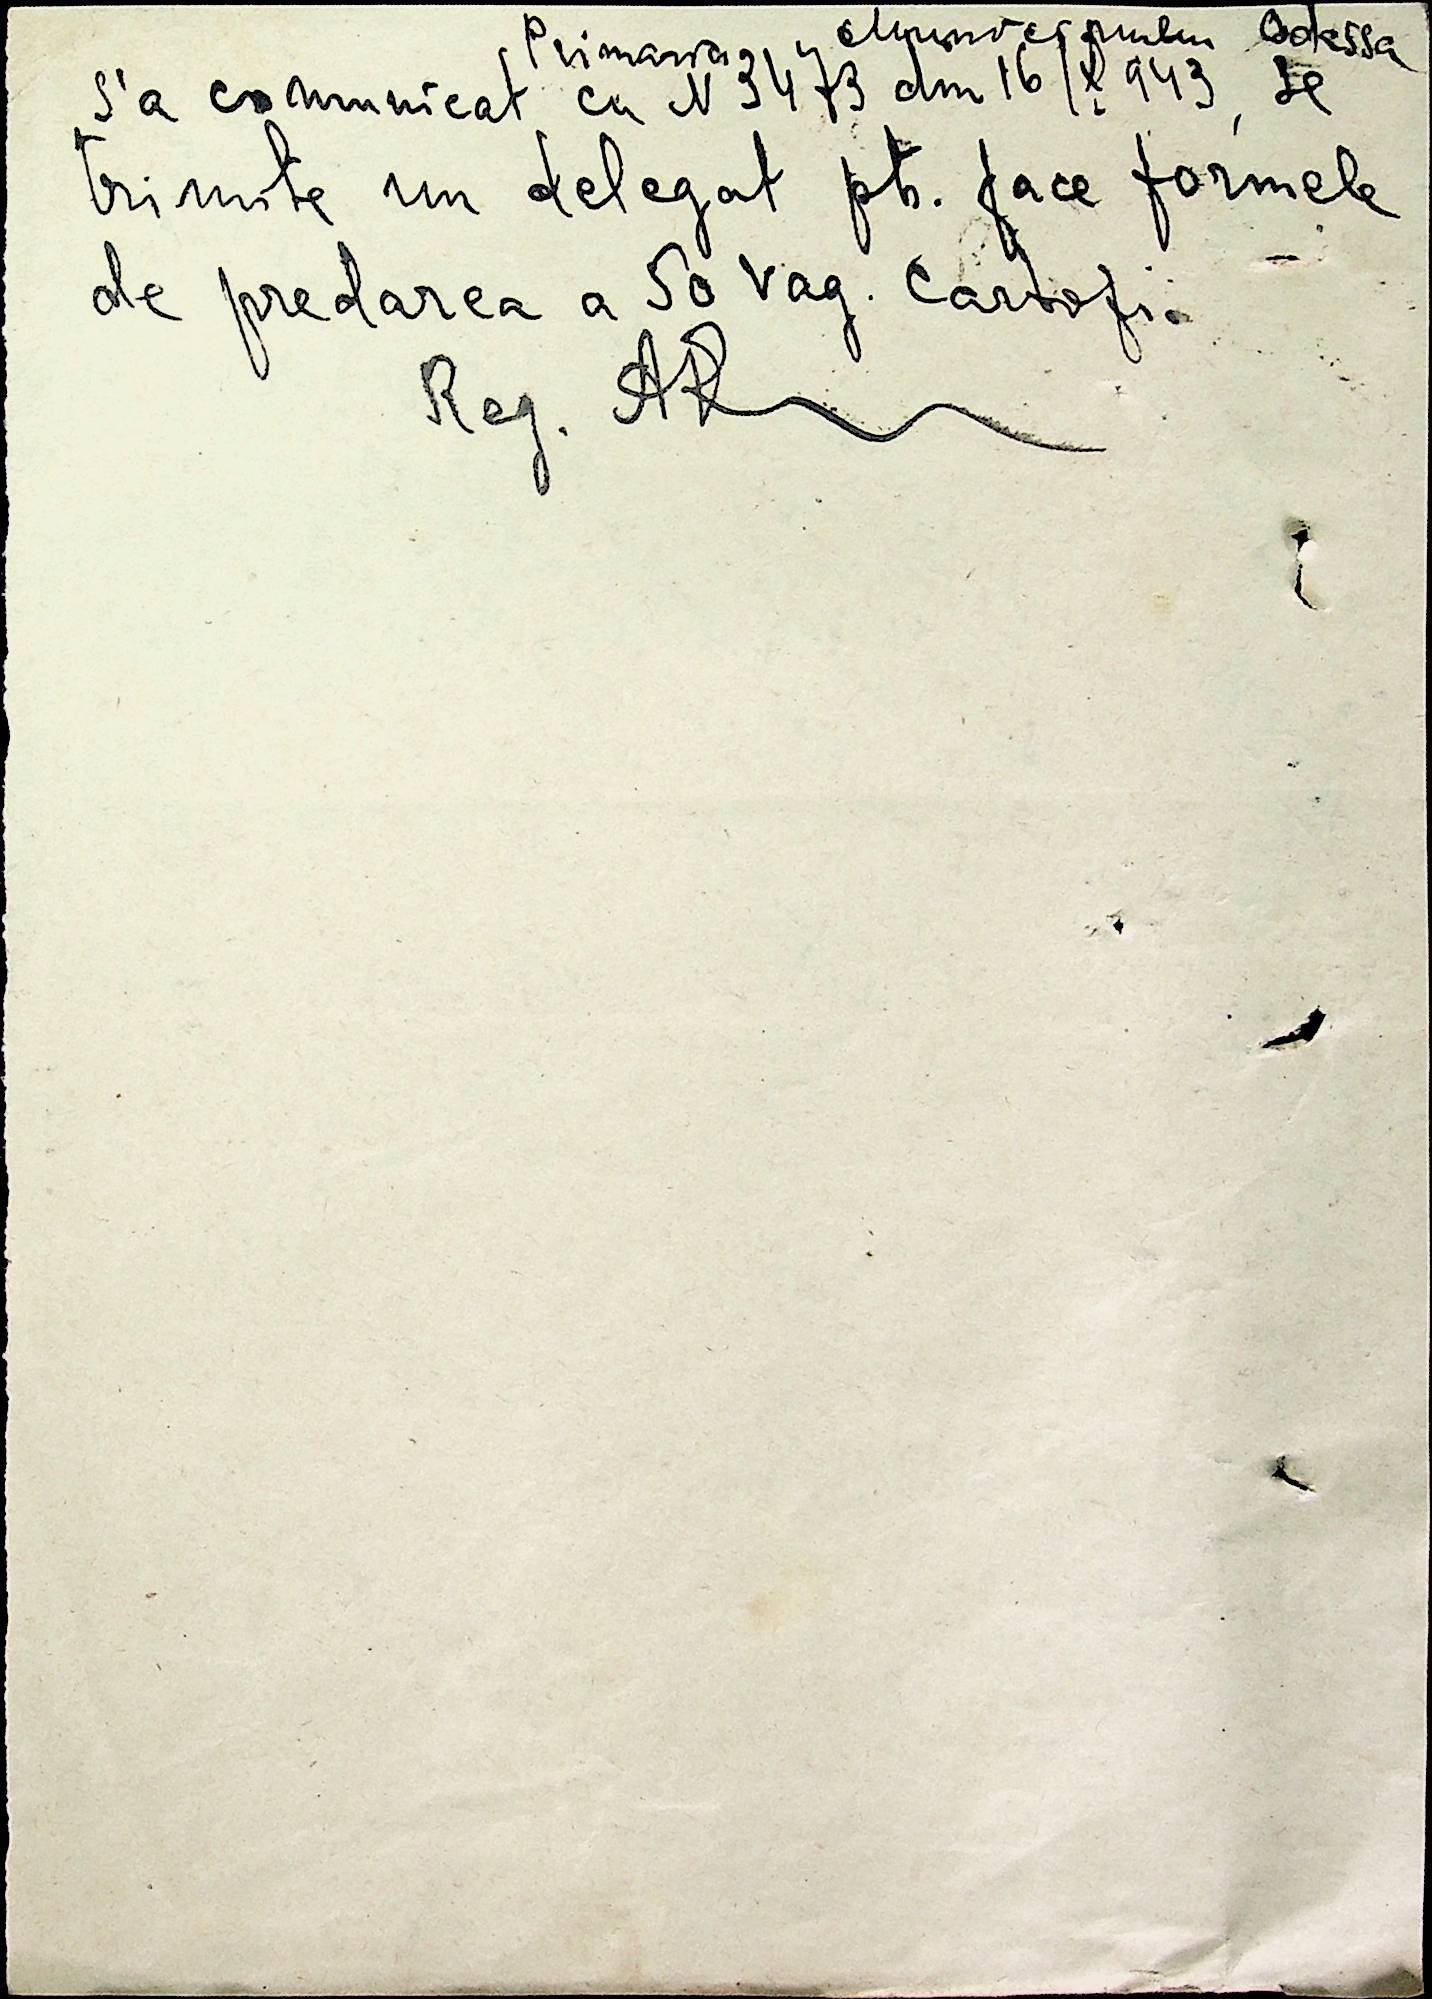 Primaria Municipiului Odessa
S'a comunicat cu N 3473 din 16/X 943, se
trimite un delegat pt. face formele
de predarea a 50 vag. Cartofi.
Reg.